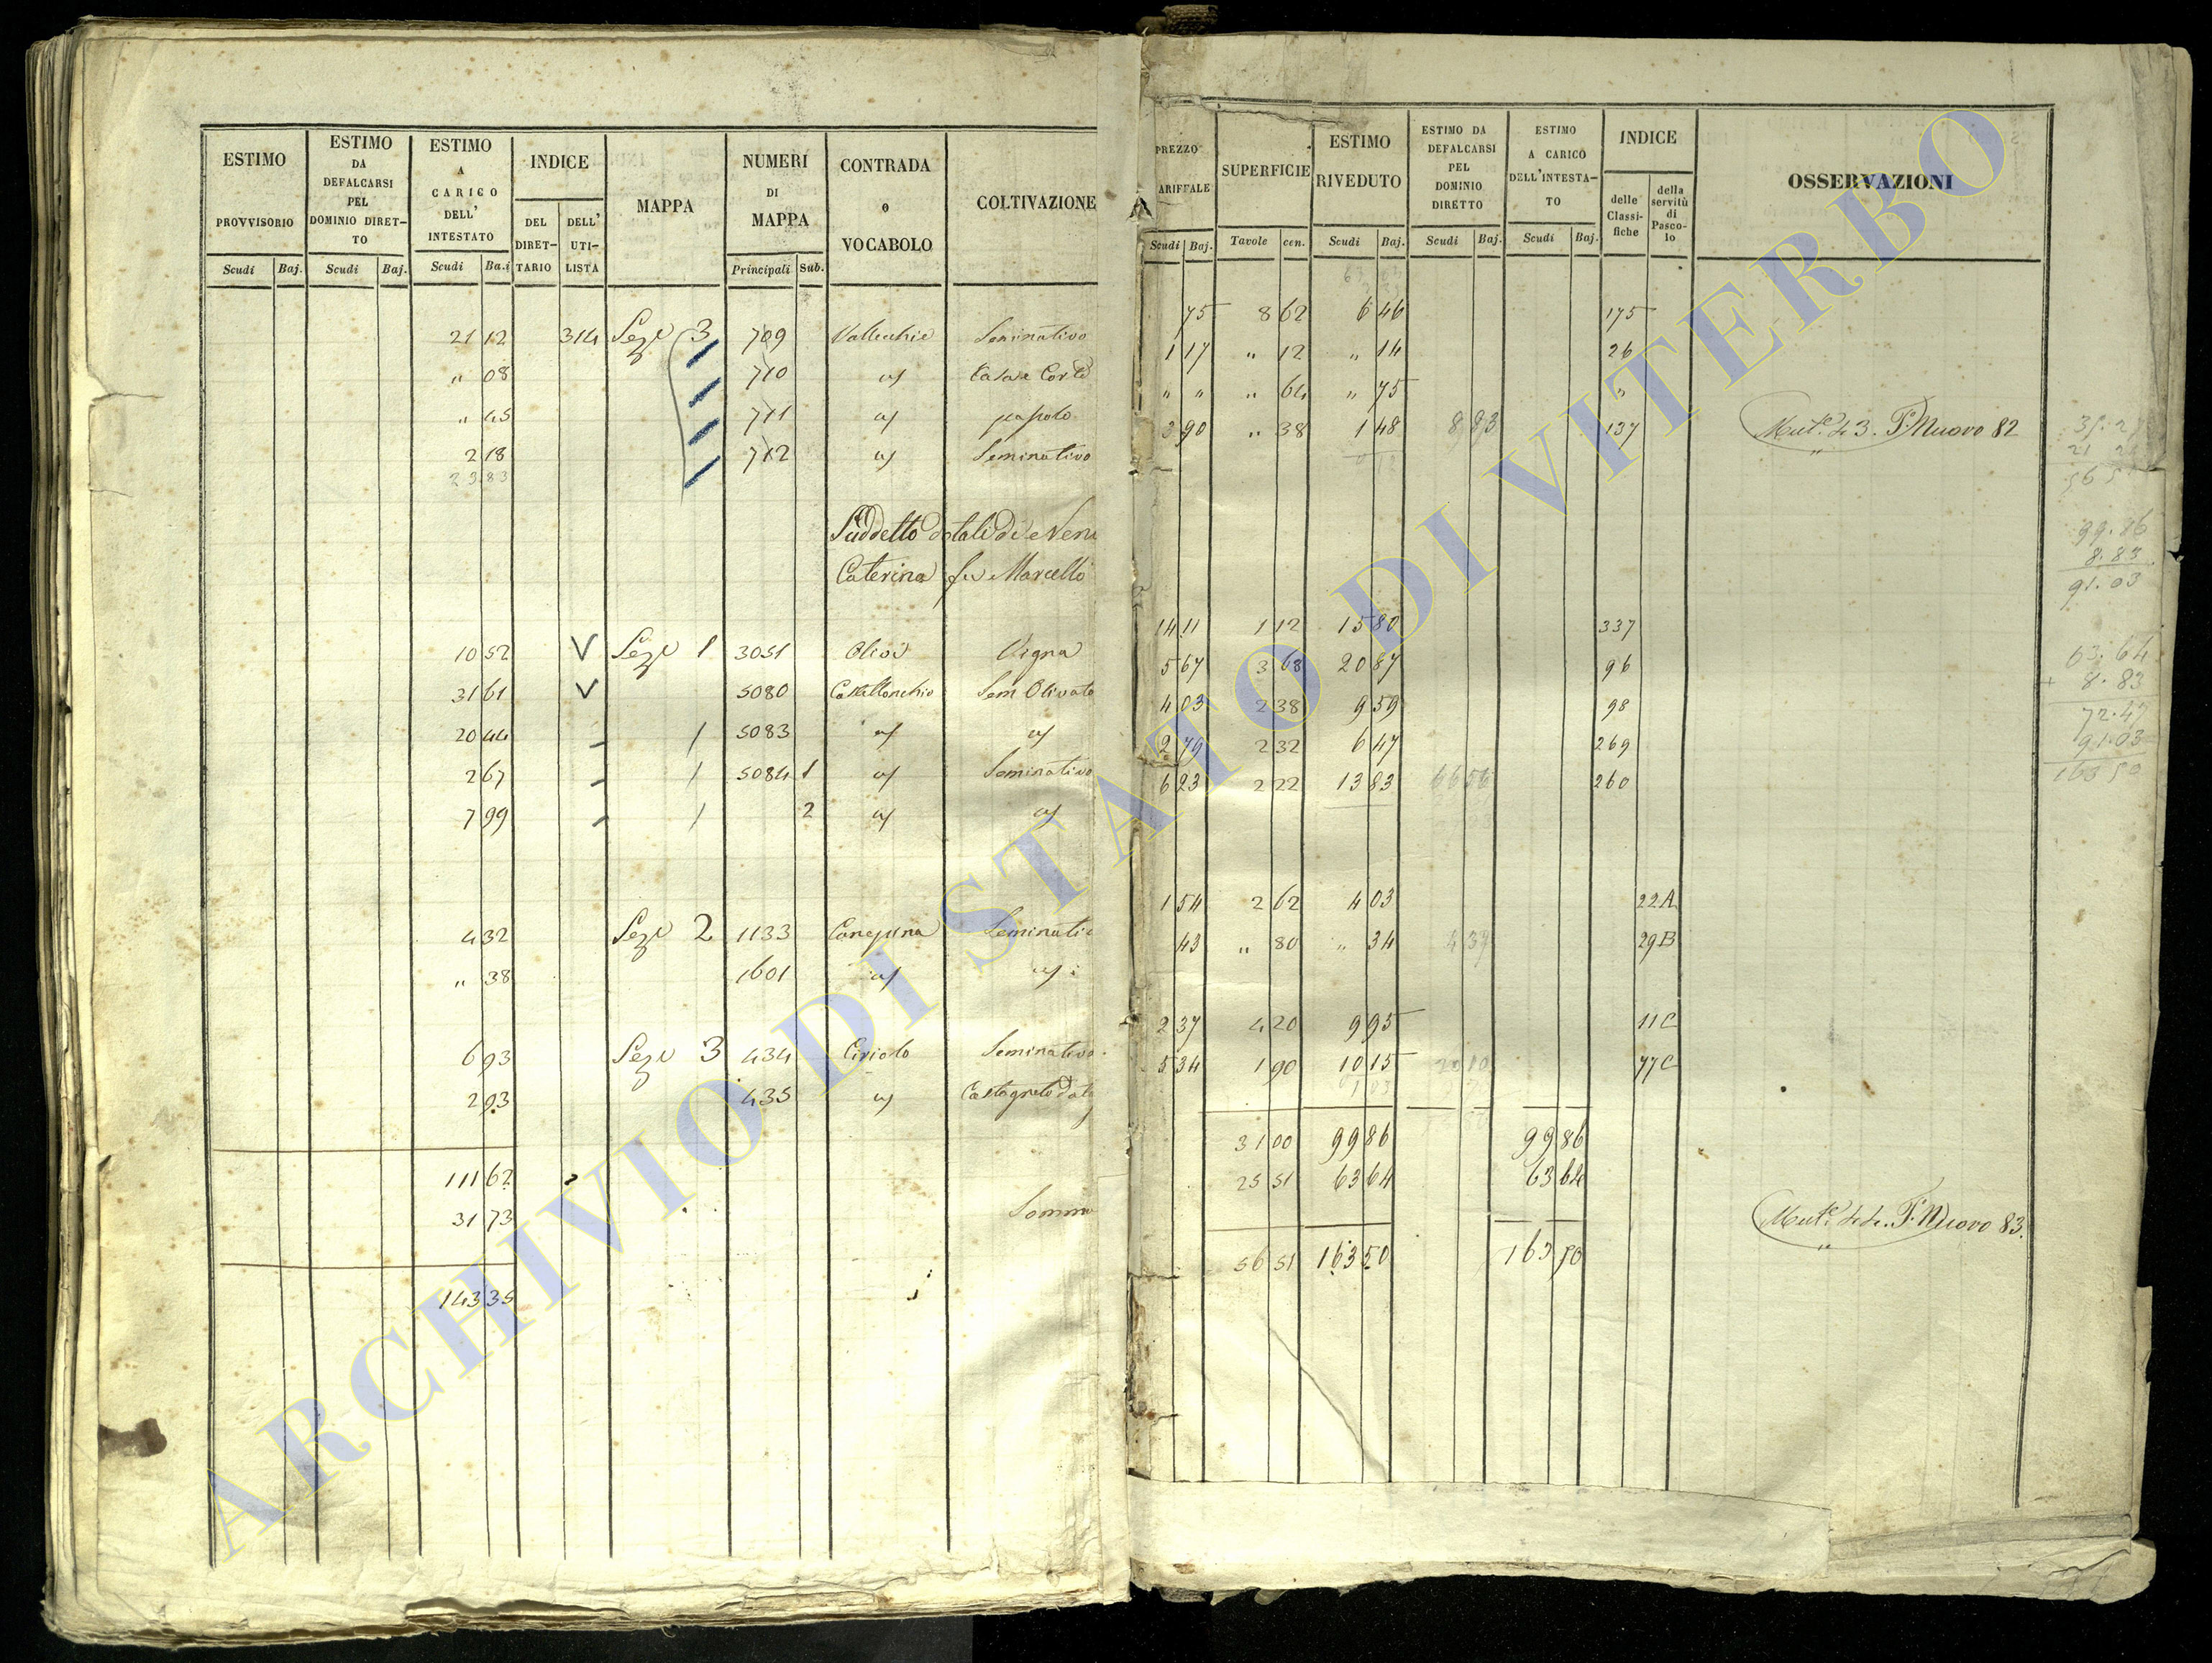 ESTIMO PROVVISORIO Scudi Baj.
ESTIMO DA DEFALCARSI PEL DOMINIO DIRET-TO Scudi Baj.
ESTIMO A CARICO DELL' INTESTATO Scudi Ba.i
INDICE DEL DIRET-TARIO DELL' UTI-LISTA
MAPPA
NUMERI DI MAPPA Principali Sub.
CONTRADA o VOCABOLO
COLTIVAZIONE
21 12 314 Seze 3 709 Vallecchie Seminativo
" 08 710 Casa e Corte
" 45 711
2 18 712 Seminativo
23.83
Suddetto dotali di
Caterina fu Marcello
10 52 V Seze 1 3051 Olivi Vigna
31 61 V 5080 Sem Olivato
20 44 / 5083
2 67 / 5084 1 Seminativo
7 99 / 2
4 32 Seze 2 1133 Canepina Seminativ
" 38 1601
6 93 Seze 3 434 Seminativo
2 93 435
111 62
31 73 Somma
143 35
PREZZO ARIFFALE Scudi Baj.
SUPERFICIE Tavole cen.
ESTIMO RIVEDUTO Scudi Baj.
ESTIMO DA DEFALCARSI PEL DOMINIO DIRETTO Scudi Baj.
ESTIMO A CARICO DELL'INTESTA-TO Scudi Baj.
INDICE delle Classi-fiche della servitù di Pasco-lo
OSSERVAZIONI
75 8 62 6 46 175
1 17 " 12 " 14 26
" " " 64 " 75 "
3 90 " 38 1 48 8 83 137 Mut.e 43. P. Nuovo 82
14 11 1 12 15 80 337
5 67 3 68 20 87 96
4 03 2 38 9 59 98
2 79 2 32 6 47 269
6 23 2 22 13 83 66 56 260
1 54 2 62 4 03 22A
43 " 80 " 34 4 37 29B
2 37 4 20 9 95 11C
5 34 1 90 10 15 20 10 77C
31 00 99 86 99 86
25 51 63 64 63 64
Mut.e 44. P. Nuovo 83.
56 51 163 50 163 50
8.83
91.03
63.64
+ 8.83
72.47
91.03
163 50
ARCHIVIO DI STATO DI VITERBO